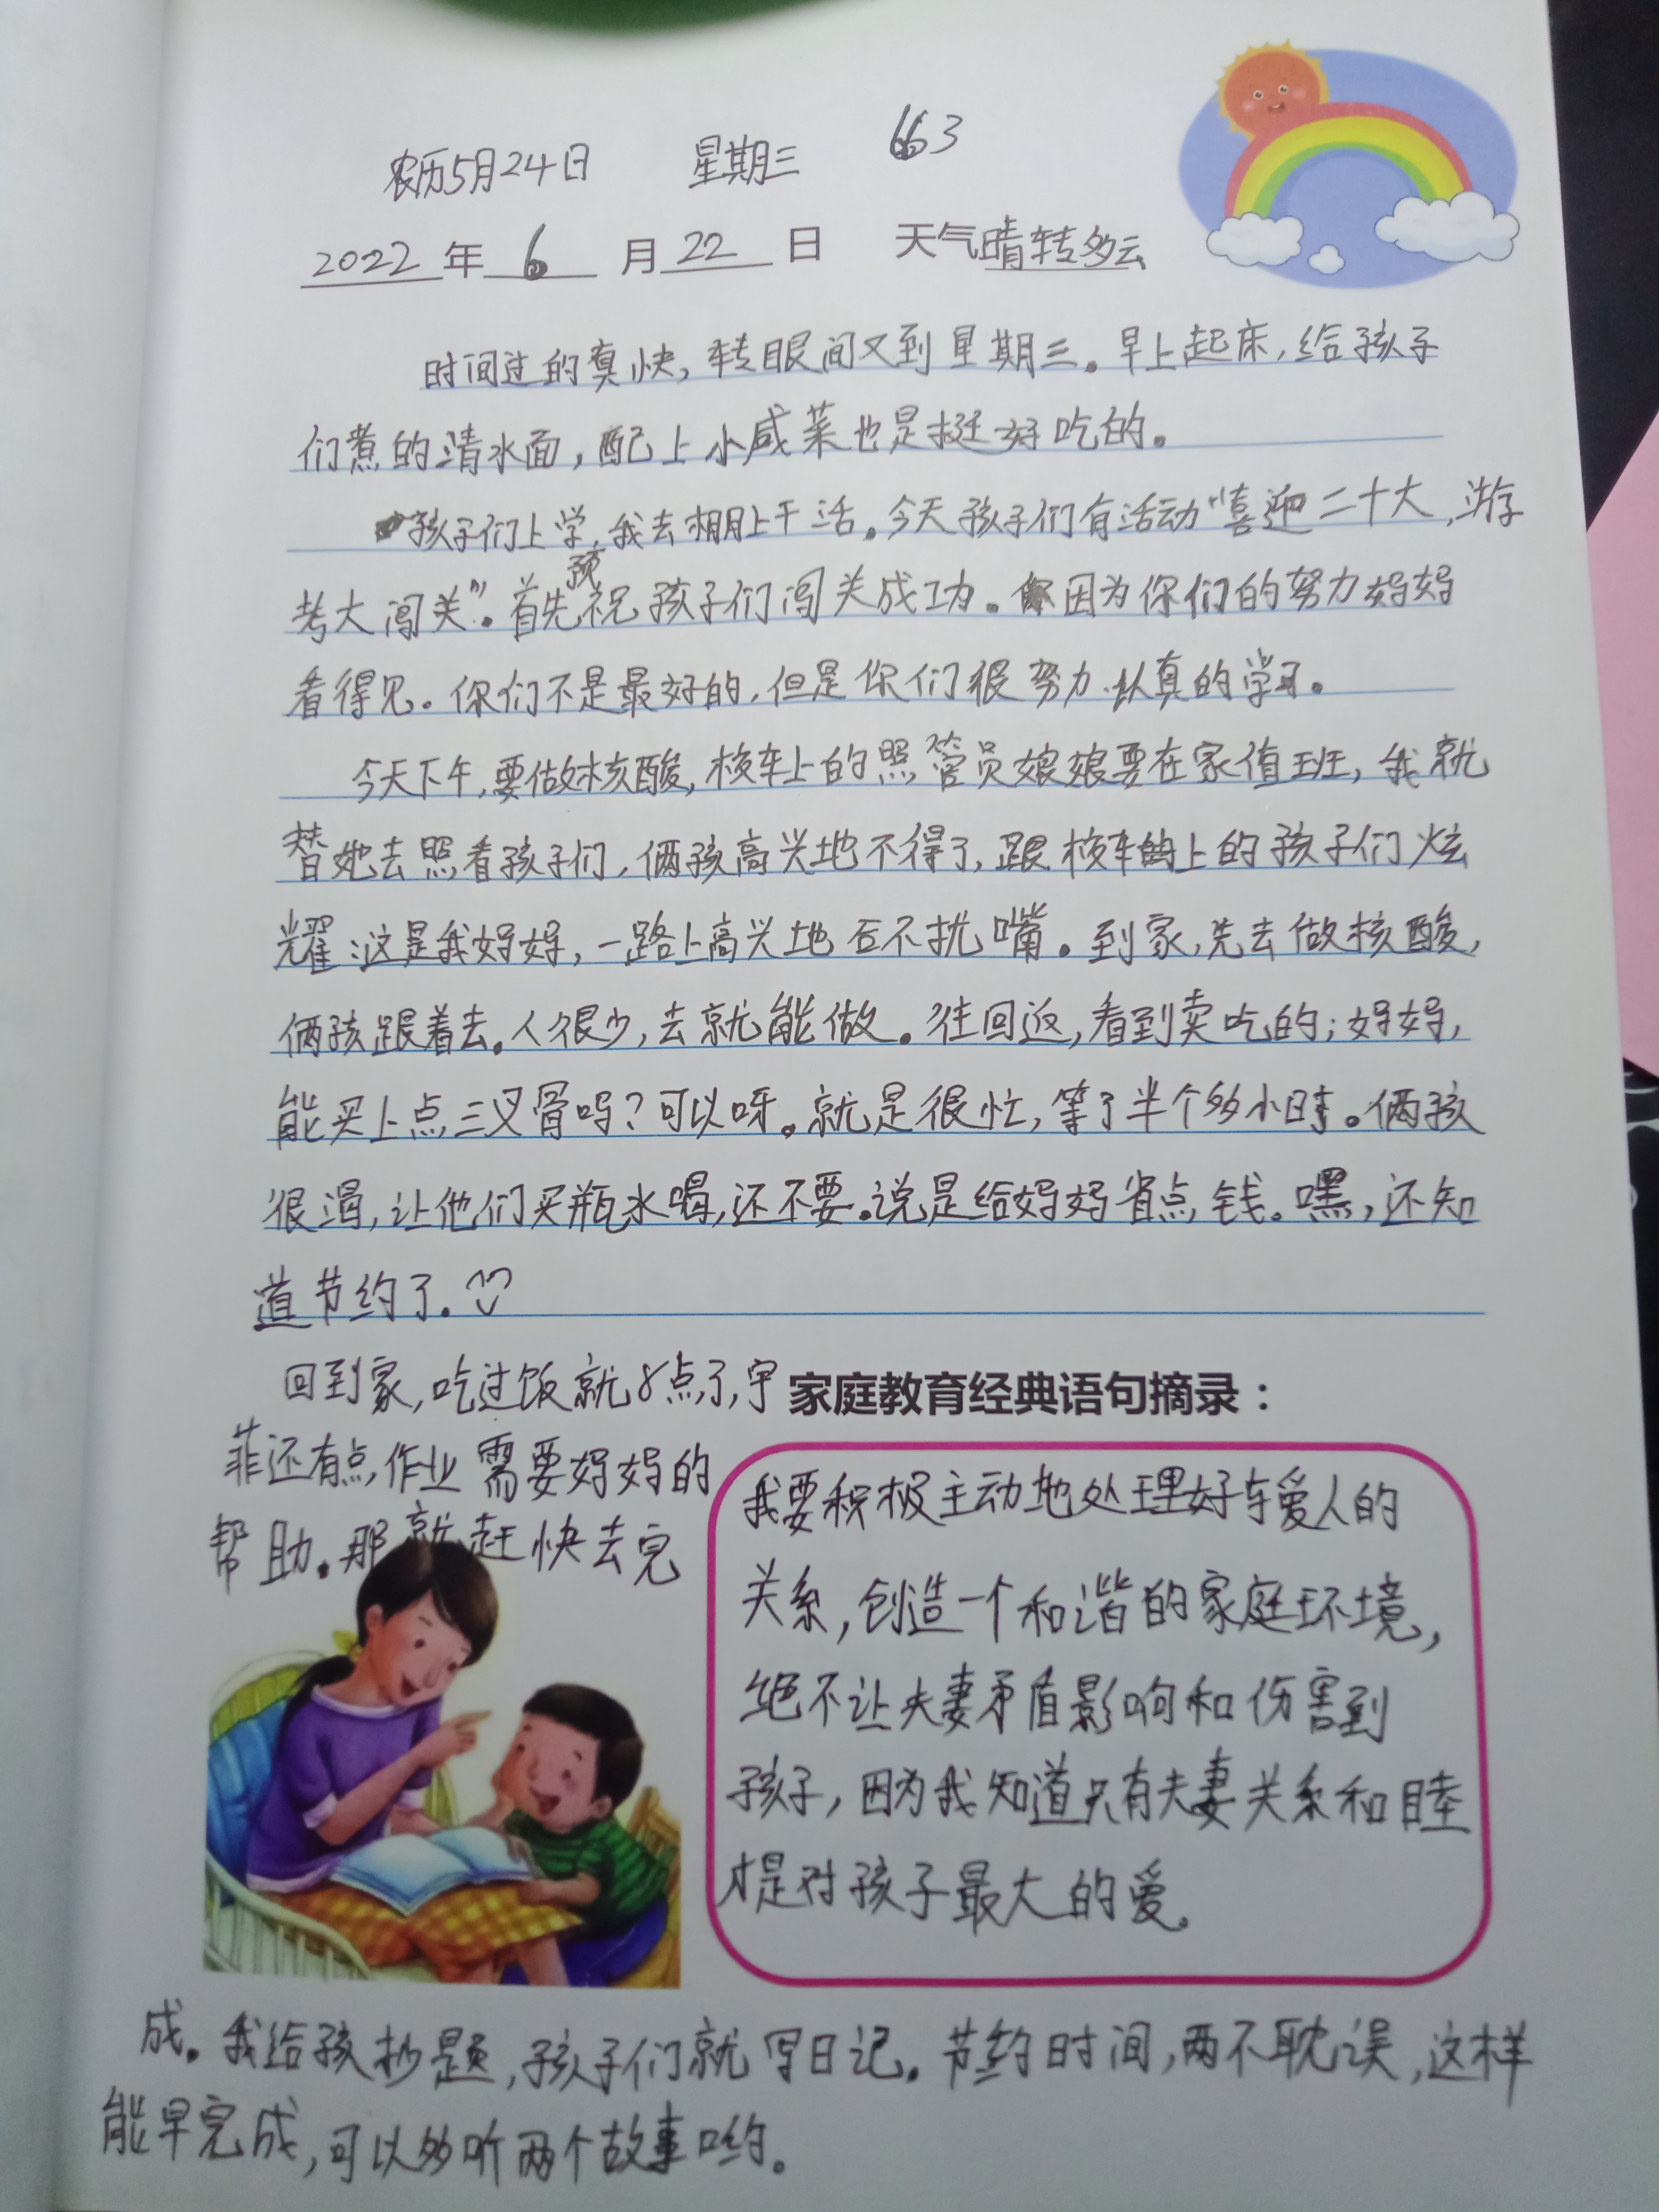 农历5月24日 星期三 663
2022年6月22日 天气晴转多云
时间过的真快,转眼间又到星期三。早上起床,给孩子
们煮的清水面,配上小咸菜也是挺好吃的。
孩子们上学,我去棚上干活。今天孩子们有活动“喜迎二十大,游
考大闯关”。首先预祝孩子们闯关成功。因为你们的努力妈妈
看得见。你们不是最好的,但是你们很努力、认真的学习。
今天下午,要做核酸,校车上的照管员娘娘要在家值班,我就
替她去照看孩子们,俩孩高兴地不得了,跟校车上的孩子们炫
耀:这是我妈妈,一路上高兴地合不拢嘴。到家,先去做核酸,
俩孩跟着去。人很少,去就能做。往回返,看到卖吃的;妈妈,
能买上点三叉骨吗?可以呀。就是很忙,等了半个多小时。俩孩
很渴,让他们买瓶水喝,还不要。说是给妈妈省点钱。嘿,还知
道节约了。
回到家,吃过饭就8点了,宇
菲还有点作业需要妈妈的
帮助。那就赶快去完
家庭教育经典语句摘录:
我要积极主动地处理好与爱人的
关系,创造一个和谐的家庭环境,
绝不让夫妻矛盾影响和伤害到
孩子,因为我知道只有夫妻关系和睦
才是对孩子最大的爱。
成。我给孩抄题,孩子们就写日记。节约时间,两不耽误,这样
能早完成,可以多听两个故事哟。